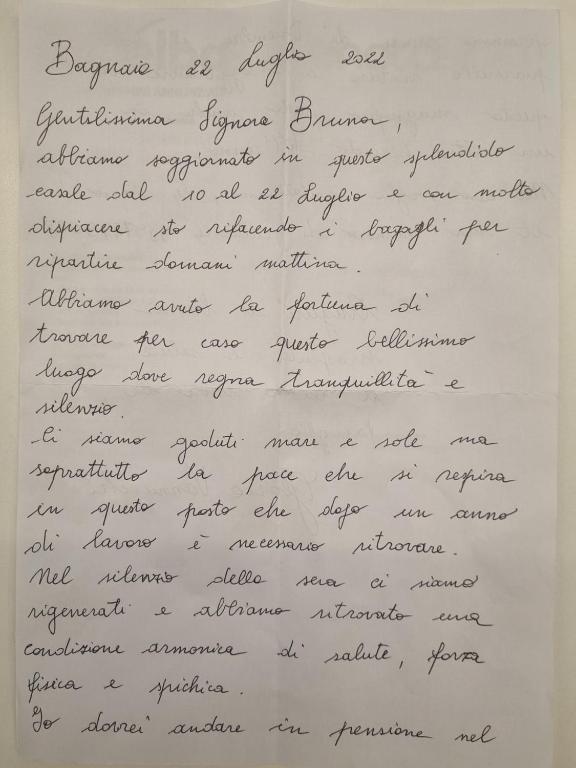 Bagnaia 22 Luglio 2022
Gentilissima Signora Bruna,
abbiamo soggiornato in questo splendido
casale dal 10 al 22 Luglio e con molto
dispiacere sto rifacendo i bagagli per
ripartire domani mattina.
Abbiamo avuto la fortuna di
trovare per caso questo bellissimo
luogo dove regna tranquillità e
silenzio.
Ci siamo goduti mare e sole ma
soprattutto la pace che si respira
in questo posto che dopo un anno
di lavoro è necessario ritrovare.
Nel silenzio della sera ci siamo
rigenerati e abbiamo ritrovato una
condizione armonica di salute, forza
fisica e spichica.
Io dovrei andare in pensione nel